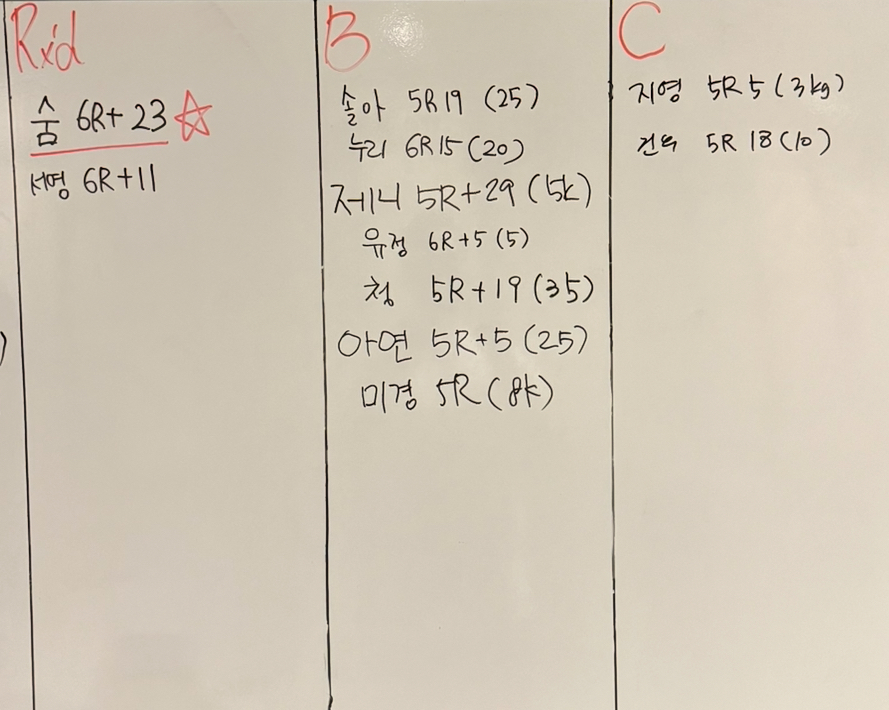 Rx'd
숨 6R+23
서영 6R+11
B
솔아 5R19 (25)
누리 6R15(20)
제니 5R+29 (5k)
유정 6R+5 (5)
청 5R+19 (35)
아연 5R+5 (25)
미경 5R (8k)
C
지영 5R5 (3kg)
5R 18 (10)
)